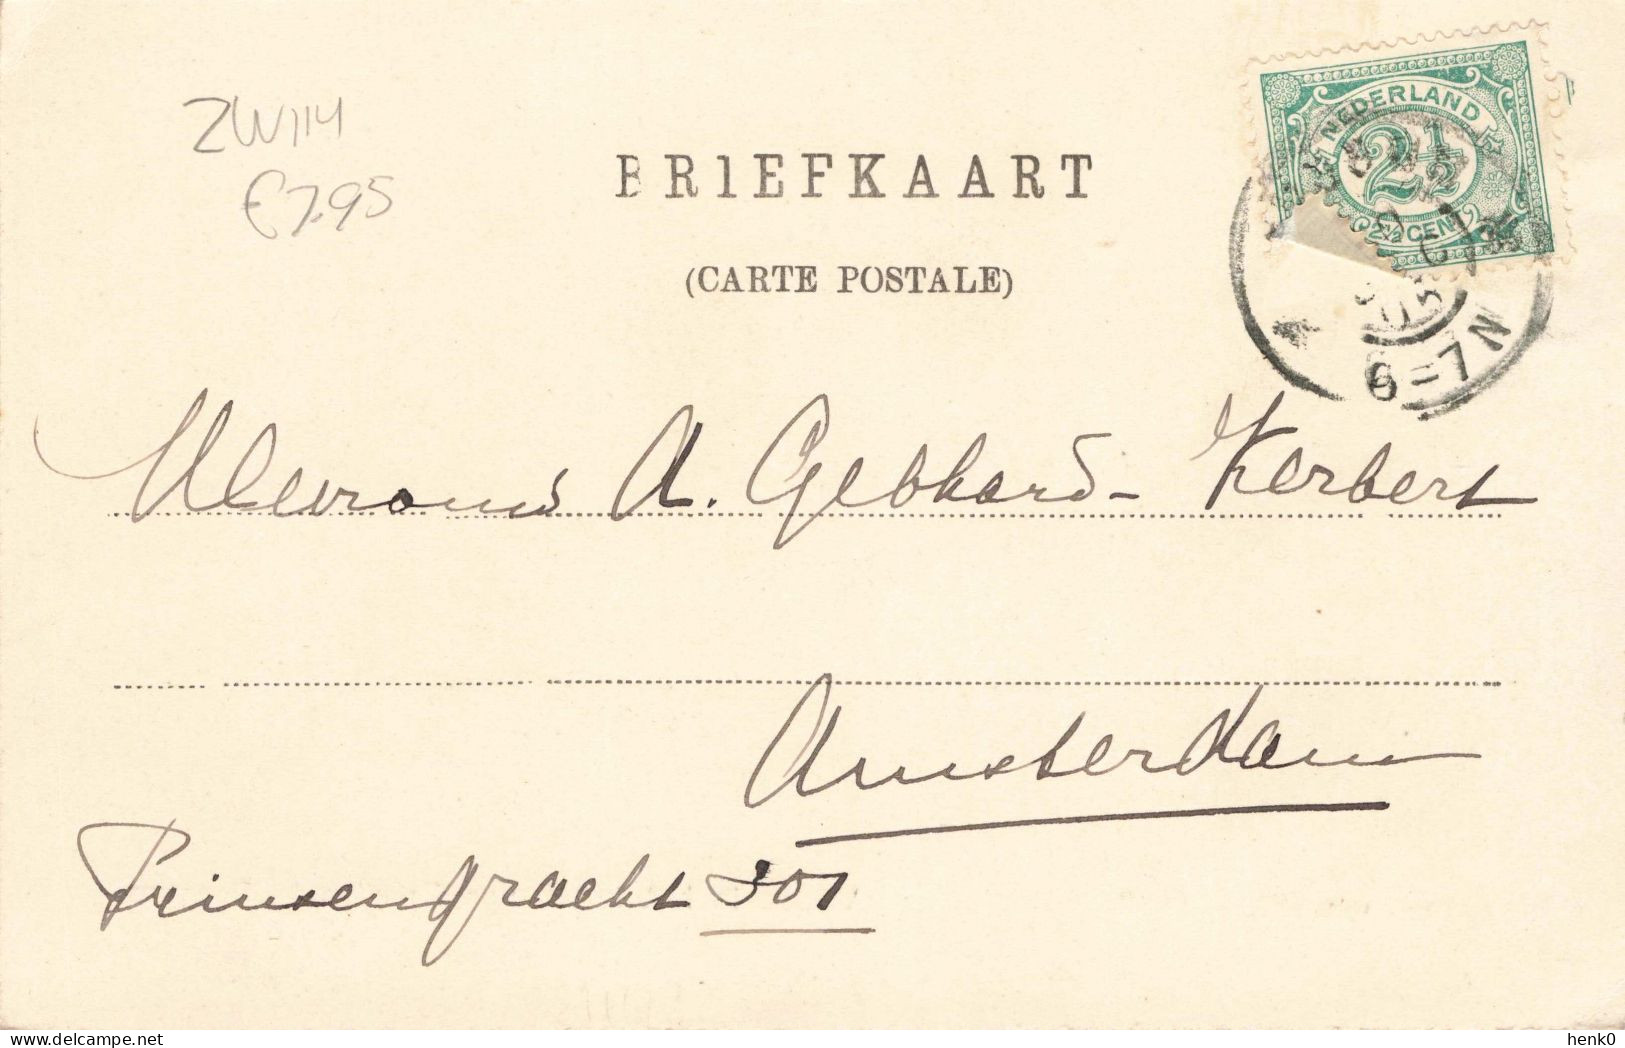 ZW114
€7.95
BRIEFKAART
(CARTE POSTALE)
NEDERLAND
2½
2½ CENT
6=7N
Mevrouw A. Gebhard-Kerbert
Amsterdam
Prinsengracht 301
delcampe.net
henk0